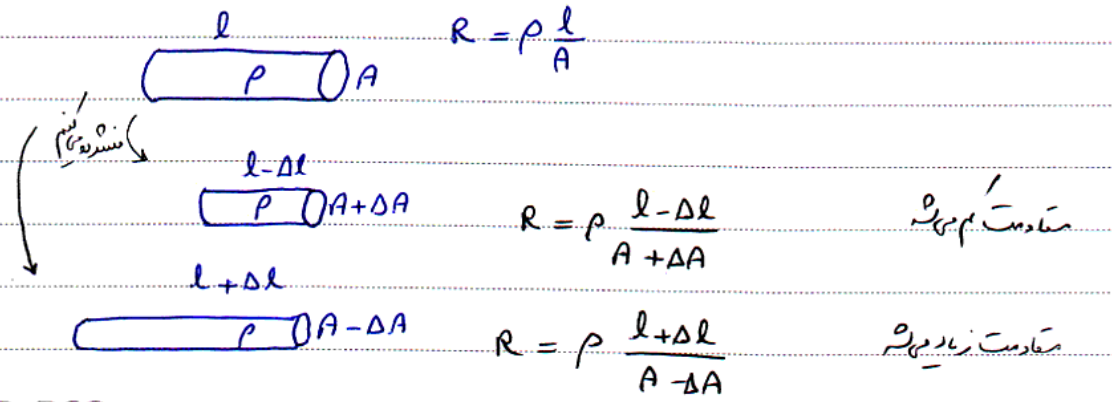 l
R = ρ l/A
ρ A
فشرده می‌کنیم
l-Δl
ρ A+ΔA
R = ρ (l-Δl)/(A+ΔA)
مقاومت کم می‌شه
l+Δl
ρ A-ΔA
R = ρ (l+Δl)/(A-ΔA)
مقاومت زیاد می‌شه